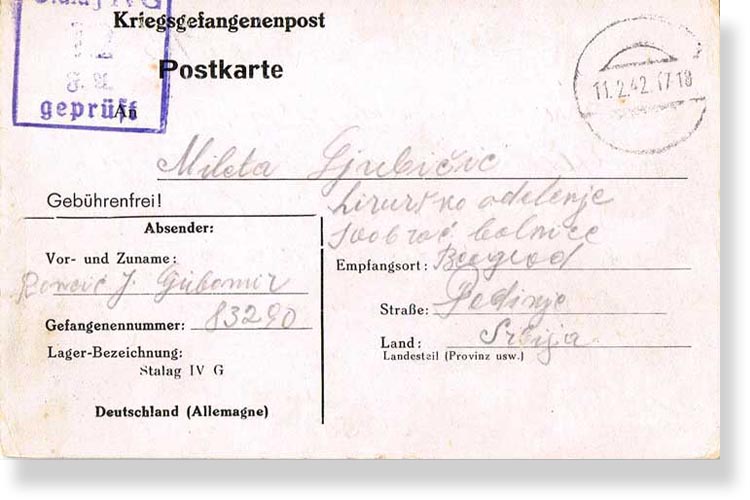 Stalag IV G
12
geprüft
Kriegsgefangenenpost
Postkarte
An
11.2.42.17-18
Mileta
Gebührenfrei!
hirurško odelenje
bolnice
Absender:
Vor- und Zuname:
J. Gubomir
Gefangenennummer: 83290
Lager-Bezeichnung:
Stalag IV G
Deutschland (Allemagne)
Empfangsort: Beograd
Straße: Dedinje
Land: Srbija
Landesteil (Provinz usw.)